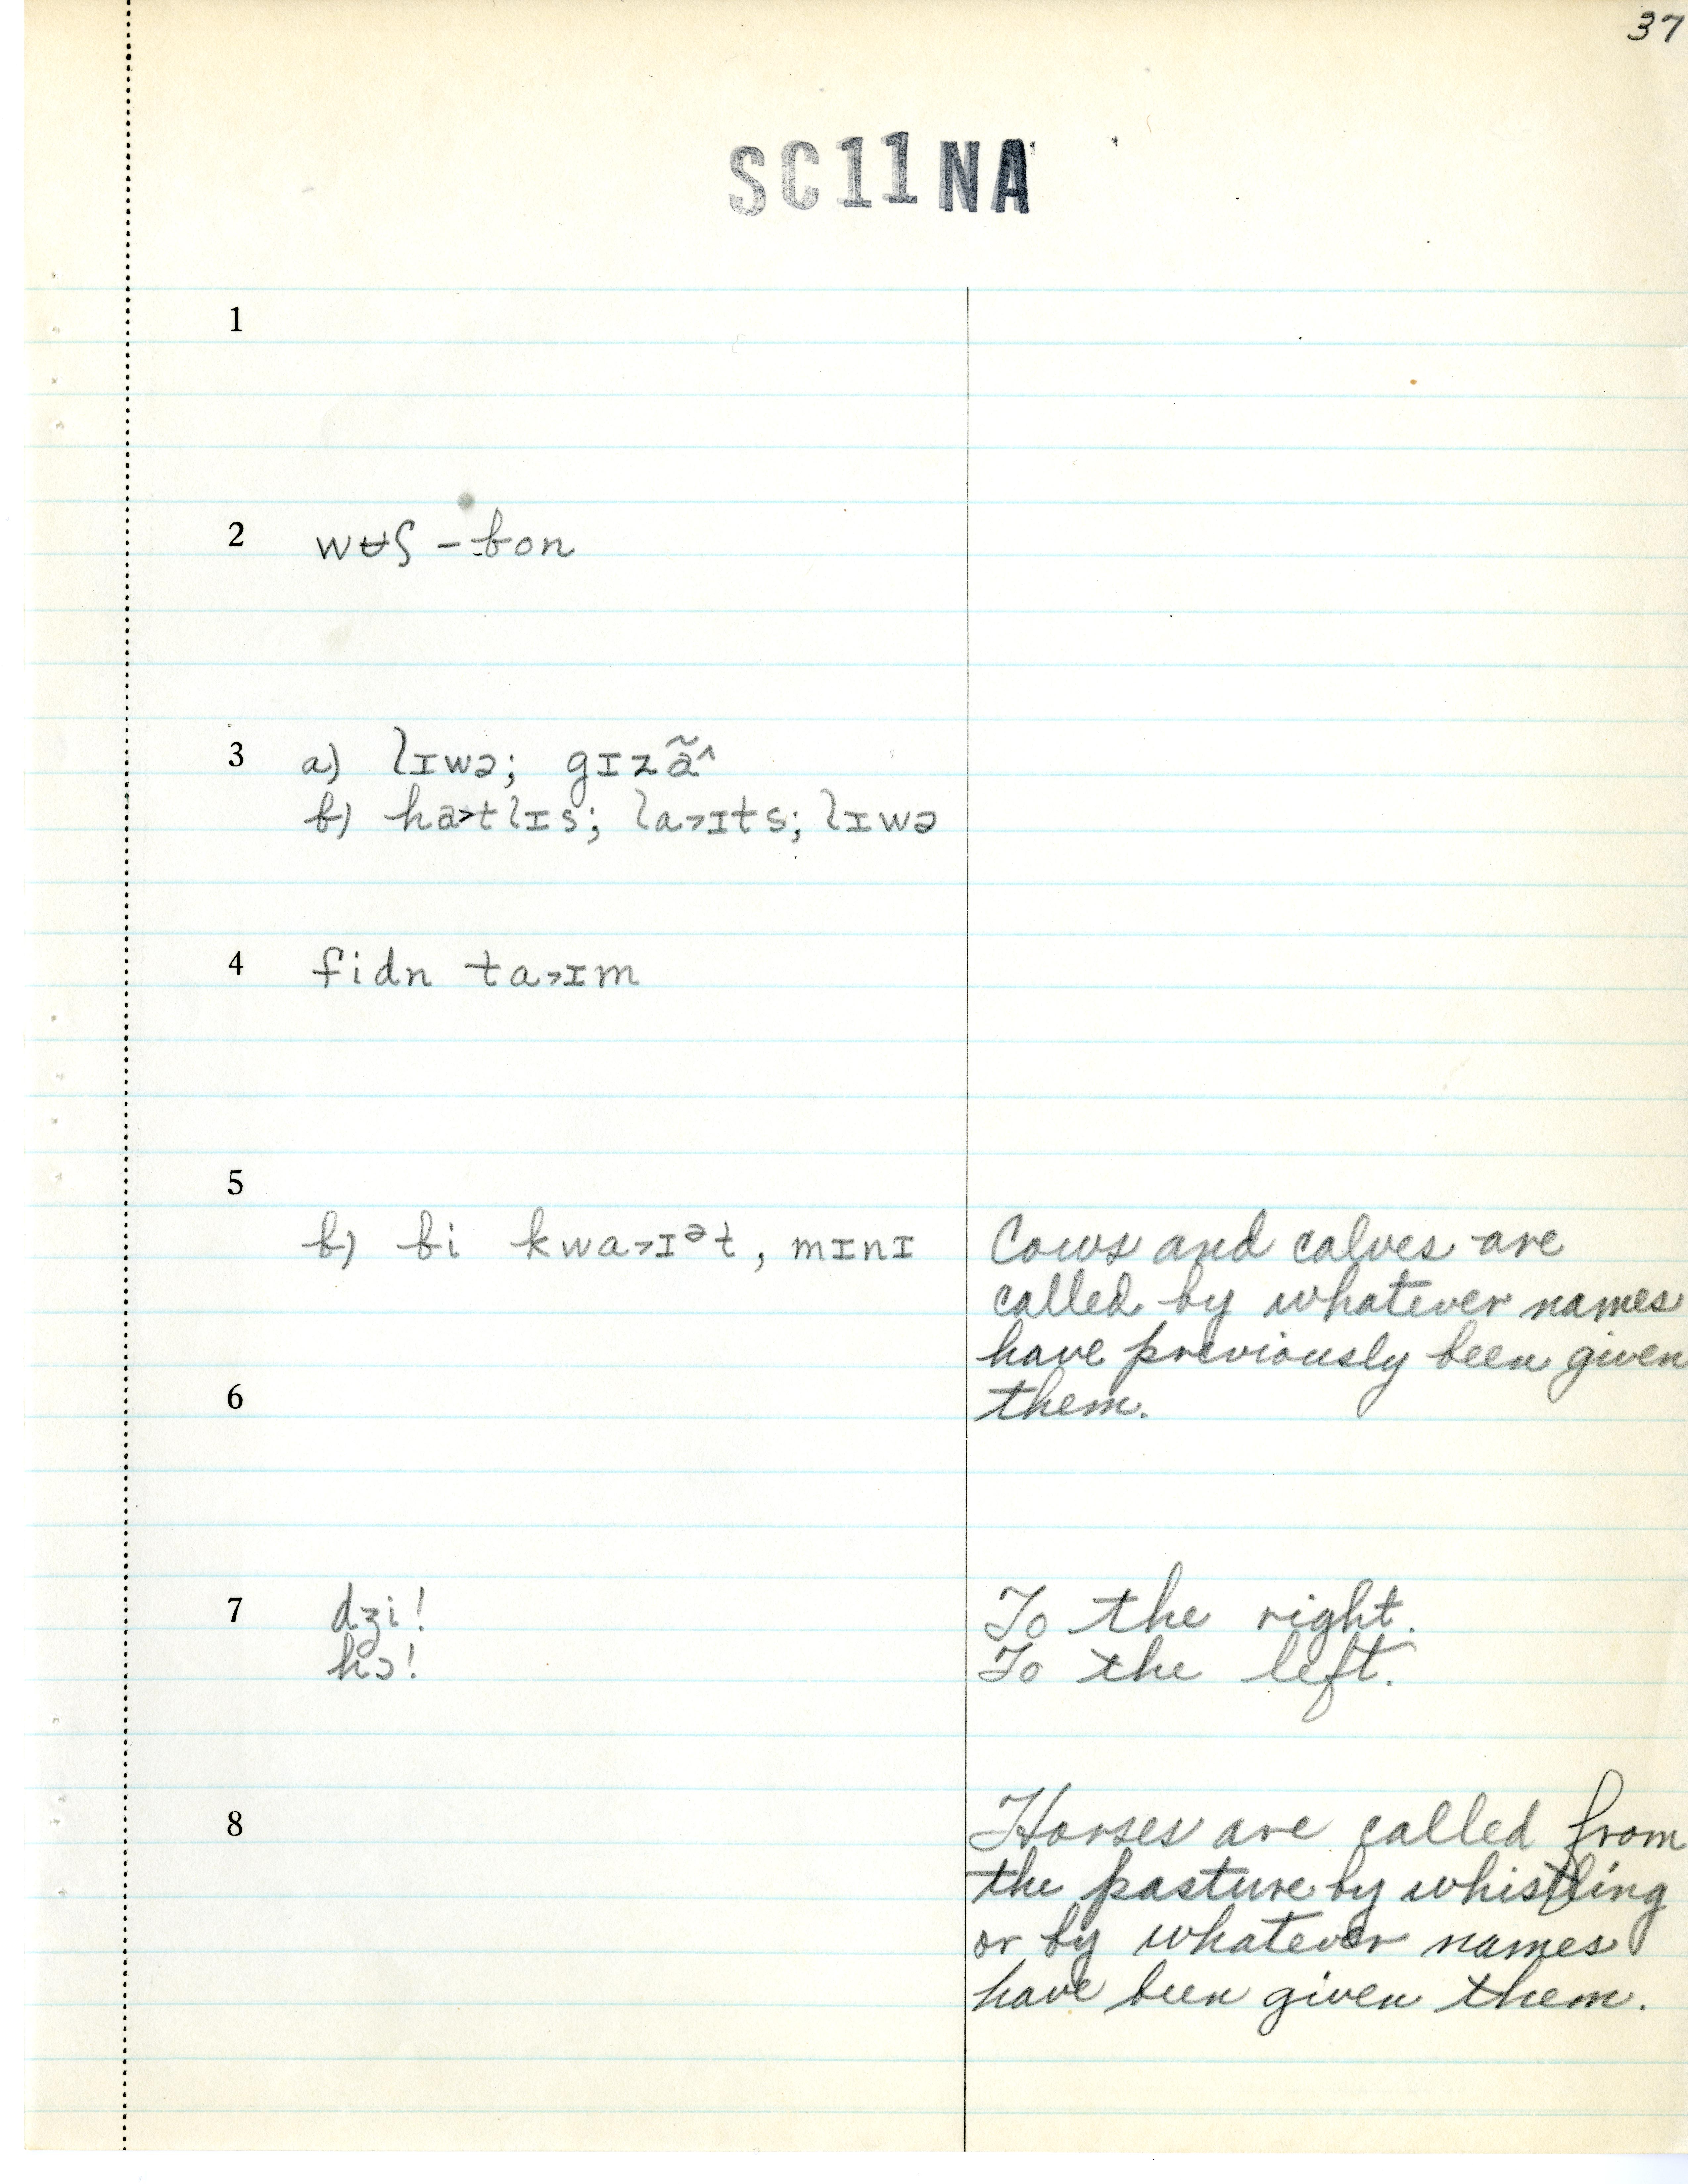 37
SC11NA
1
2 wʉʃ - bon
3 a) lɪwə; gɪzã^
b) ha>tlɪs; la>ɪts; lɪwə
4 fidn ta>ɪm
5
b) bi kwa>ɪᵊt, mɪnɪ
Cows and calves are
called by whatever names
have previously been given
6 them.
7 dʒi! To the right.
hɔ! To the left.
8 Horses are called from
the pasture by whistling
or by whatever names
have been given them.